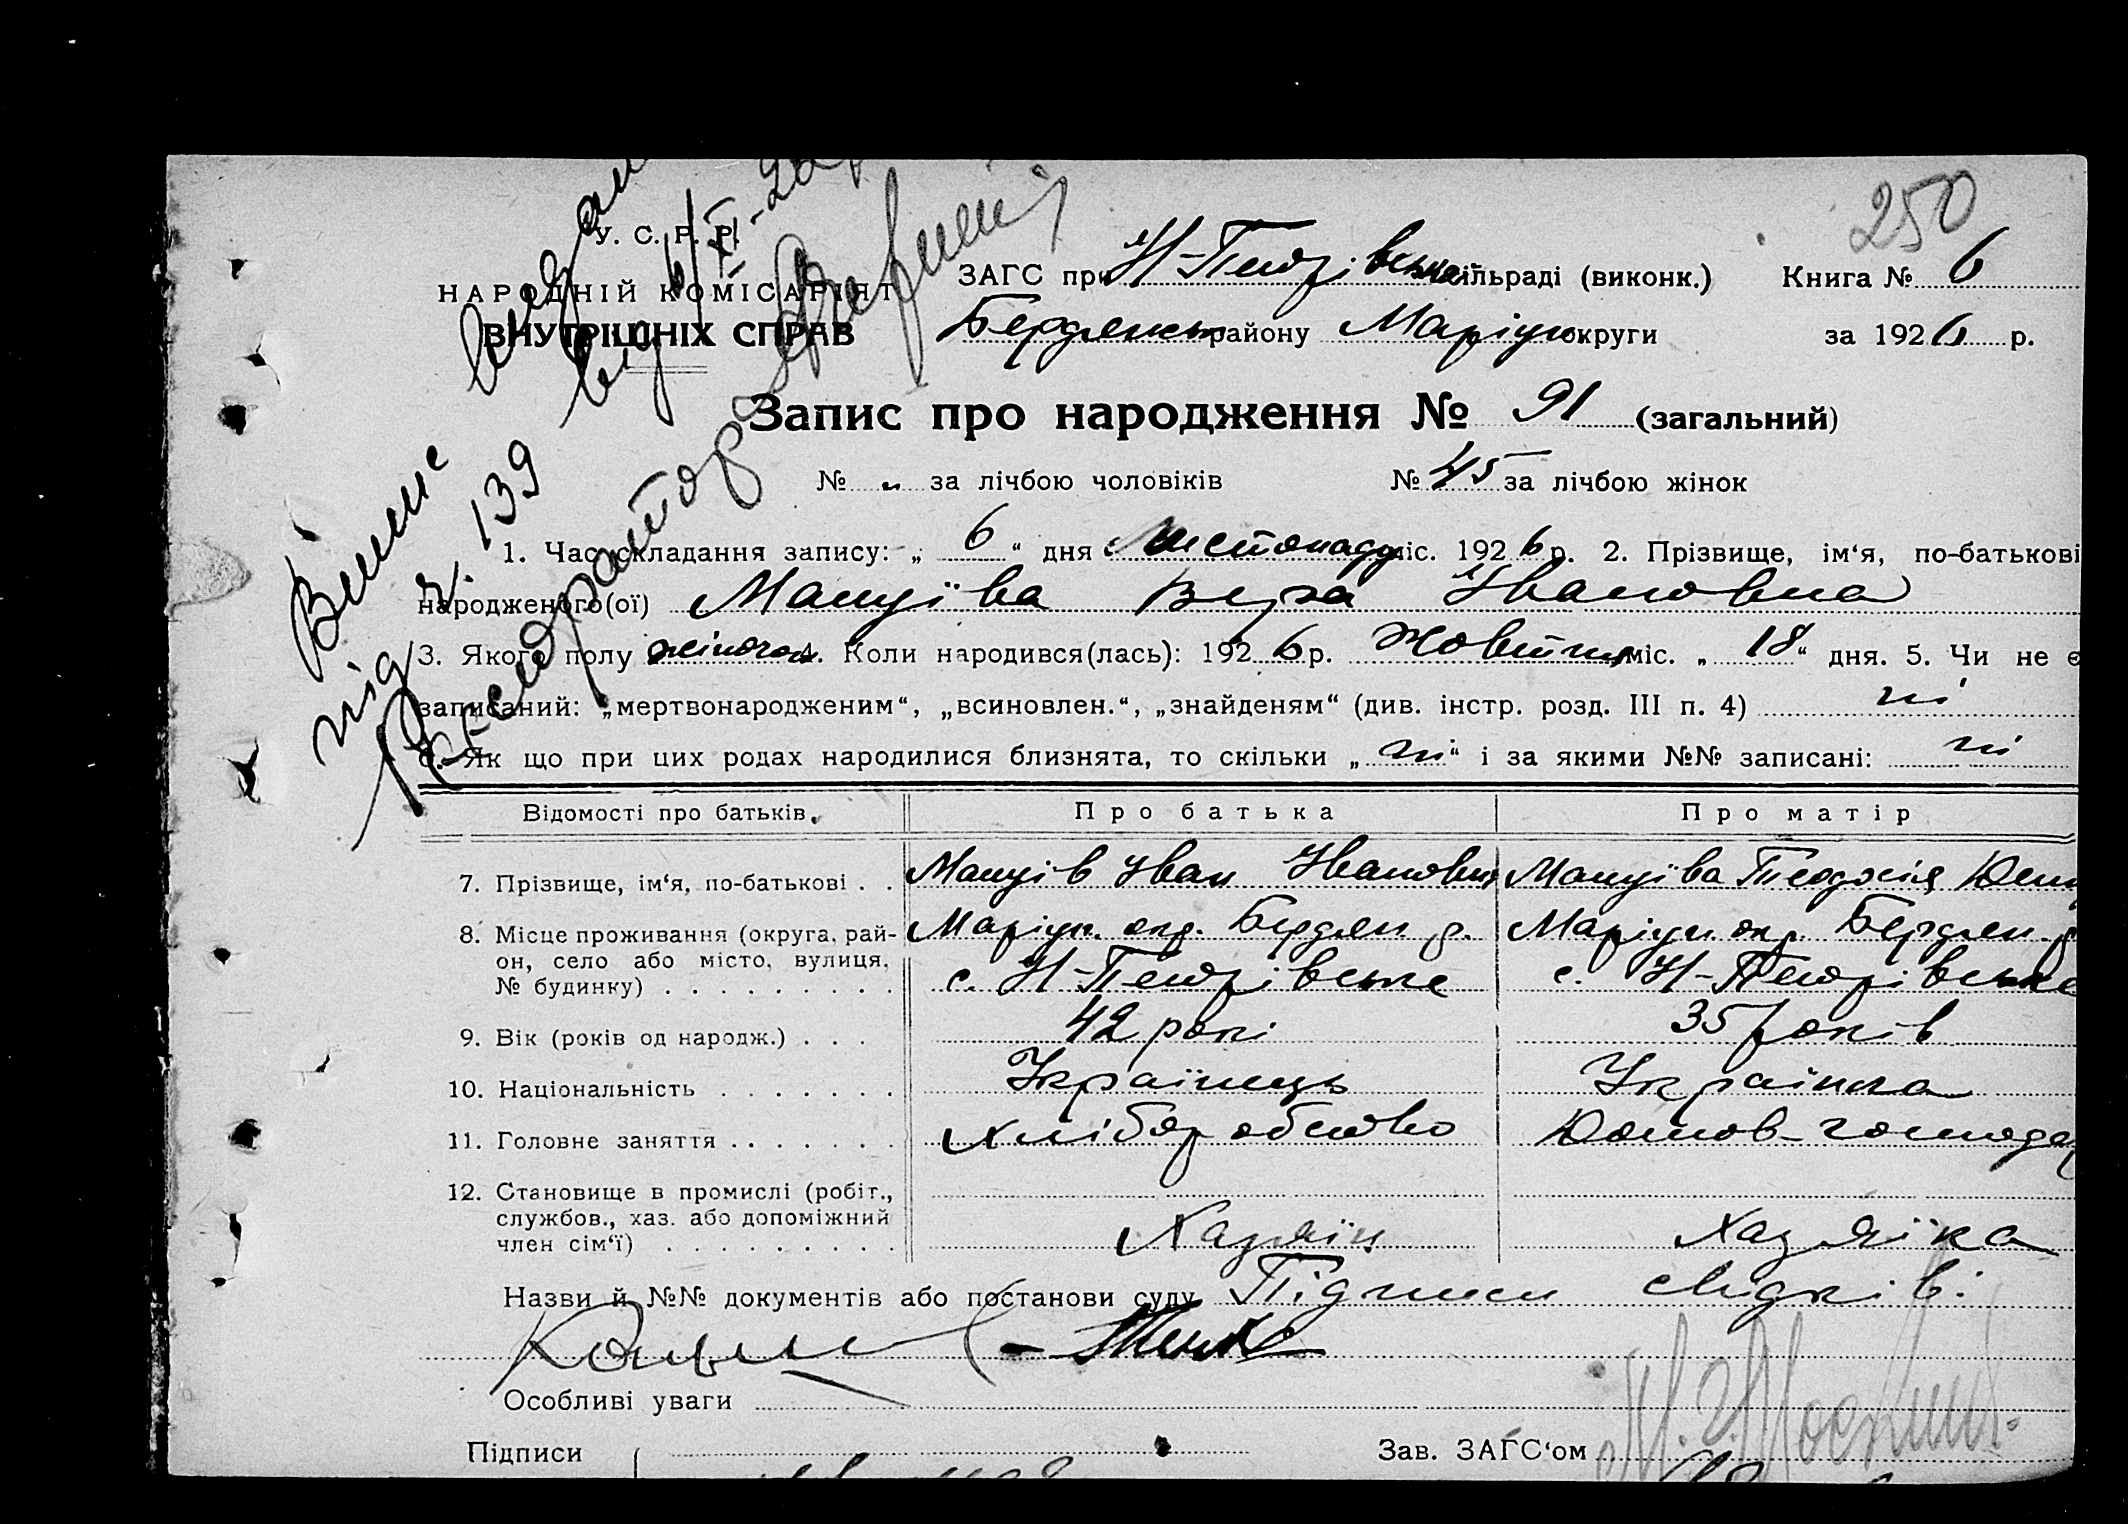 250
У. С. Р. Р.
НАРОДНІЙ КОМІСАРІЯТ
ВНУТРІШНІХ СПРАВ
ЗАГС при Н-Петрівськ сільраді (виконк.) Книга № 6
Бердянськ району Маріуп округи за 1926 р.
Запис про народження № 91 (загальний)
№ „ за лічбою чоловіків № 45 за лічбою жінок
1. Час складання запису: „ 6 “ дня Листопаду міс. 1926 р. 2. Прізвище, ім‘я, по-батькові
народженого(ої) Мануїва Віра Івановна
3. Якого полу жіночого 4. Коли народився(лась): 1926 р. Жовтня міс. „ 18 “ дня. 5. Чи не є
записаний: „мертвонародженим“, „всиновлен.“, „знайденям“ (див. інстр. розд. III п. 4) ні
6. Як що при цих родах народилися близнята, то скільки „ ні “ і за якими №№ записані: ні
Відомості про батьків. Про батька Про матір
7. Прізвище, ім‘я, по-батькові . . Мануів Іван Іванович Мануїва Теодосія
8. Місце проживання (округа, рай- Маріуп. окр. Бердян р. Маріуп. окр. Бердян. р
он, село або місто, вулиця, с. Н-Петрівське с. Н-Петрівське
№ будинку) . . . . . . . . .
9. Вік (років од народж.) . . . 42 рокі 35 років
10. Національність . . . . . . . Українець Українка
11. Головне заняття . . . . . . . Хліборобство Домов-господар
12. Становище в промислі (робіт.,
службов., хаз. або допоміжний Хазяїн Хазяїка
член сім‘ї) . . . . . . . . .
Назви й №№ документів або постанови суду Підписи свідків:
Особливі уваги
Підписи Зав. ЗАГС‘ом
Випис видан
під ч. 139 від 6/XI-26 р
Реєстратор